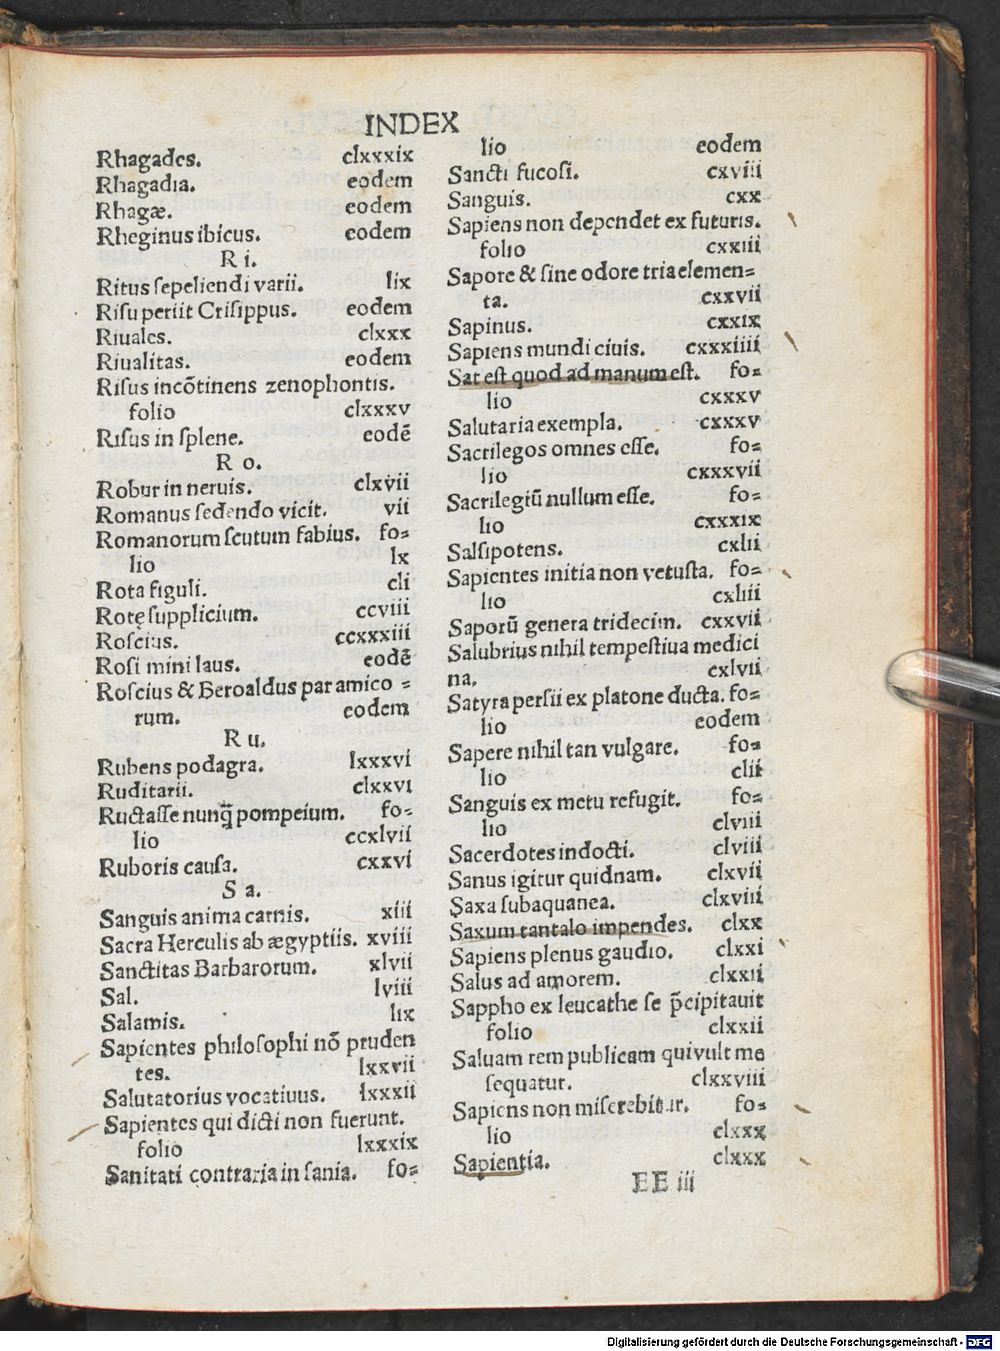 INDEX
Rhagades. clxxxix
Rhagadia. eodem
Rhagæ. eodem
Rheginus ibicus. eodem
R i.
Ritus sepeliendi varii. lix
Risu periit Crisippus. eodem
Riuales. clxxx
Riualitas. eodem
Risus incõtinens zenophontis.
folio clxxxv
Risus in splene. eodẽ
R o.
Robur in neruis. clxvii
Romanus sedendo vicit. vii
Romanorum scutum fabius. fo=
lio lx
Rota figuli. cli
Rotę supplicium. ccviii
Roscius. ccxxxiii
Rosi mini laus. eodẽ
Roscius & Beroaldus par amico=
rum. eodem
R u.
Rubens podagra. lxxxvi
Ruditarii. clxxvi
Ructasse nunq̃ pompeium. fo=
lio ccxlvii
Ruboris causa. cxxvi
S a.
Sanguis anima carnis. xiii
Sacra Herculis ab ægyptiis. xviii
Sanctitas Barbarorum. xlvii
Sal. lviii
Salamis. lix
Sapientes philosophi nõ pruden
tes. lxxvii
Salutatorius vocatiuus. lxxxii
Sapientes qui dicti non fuerunt.
folio lxxxix
Sanitati contraria insania. fo=
lio eodem
Sancti fucosi. cxviii
Sanguis. cxx
Sapiens non dependet ex futuris.
folio cxxiii
Sapore & sine odore tria elemen=
ta. cxxvii
Sapinus. cxxix
Sapiens mundi ciuis. cxxxiiii
Sat est quod ad manum est. fo=
lio cxxxv
Salutaria exempla. cxxxv
Sacrilegos omnes esse. fo=
lio cxxxvii
Sacrilegiũ nullum esse. fo=
lio cxxxix
Salsipotens. cxlii
Sapientes initia non vetusta. fo=
lio cxliii
Saporũ genera tridecim. cxxvii
Salubrius nihil tempestiua medici
na. cxlvii
Satyra persii ex platone ducta. fo=
lio eodem
Sapere nihil tan vulgare. fo=
lio clii
Sanguis ex metu refugit. fo=
lio clviii
Sacerdotes indocti. clviii
Sanus igitur quidnam. clxvii
Saxa subaquanea. clxviii
Saxum tantalo impendes. clxx
Sapiens plenus gaudio. clxxi
Salus ad amorem. clxxii
Sappho ex leucathe se p̃cipitauit
folio clxxii
Saluam rem publicam qui vult me
sequatur. clxxviii
Sapiens non miserebitur. fo=
lio clxxx
Sapientia. clxxx
EE iii
Digitalisierung gefördert durch die Deutsche Forschungsgemeinschaft - DFG